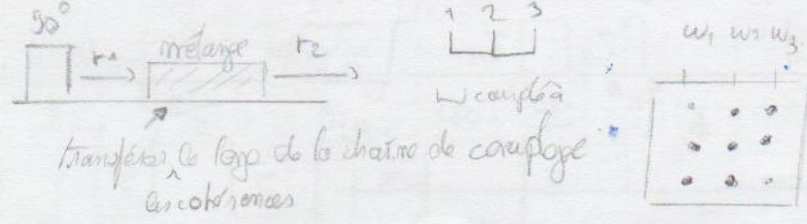 90°
t1 mélange t2
1 2 3
ω1 ω2 ω3
transférer le long de la chaîne de couplage
les cohérences